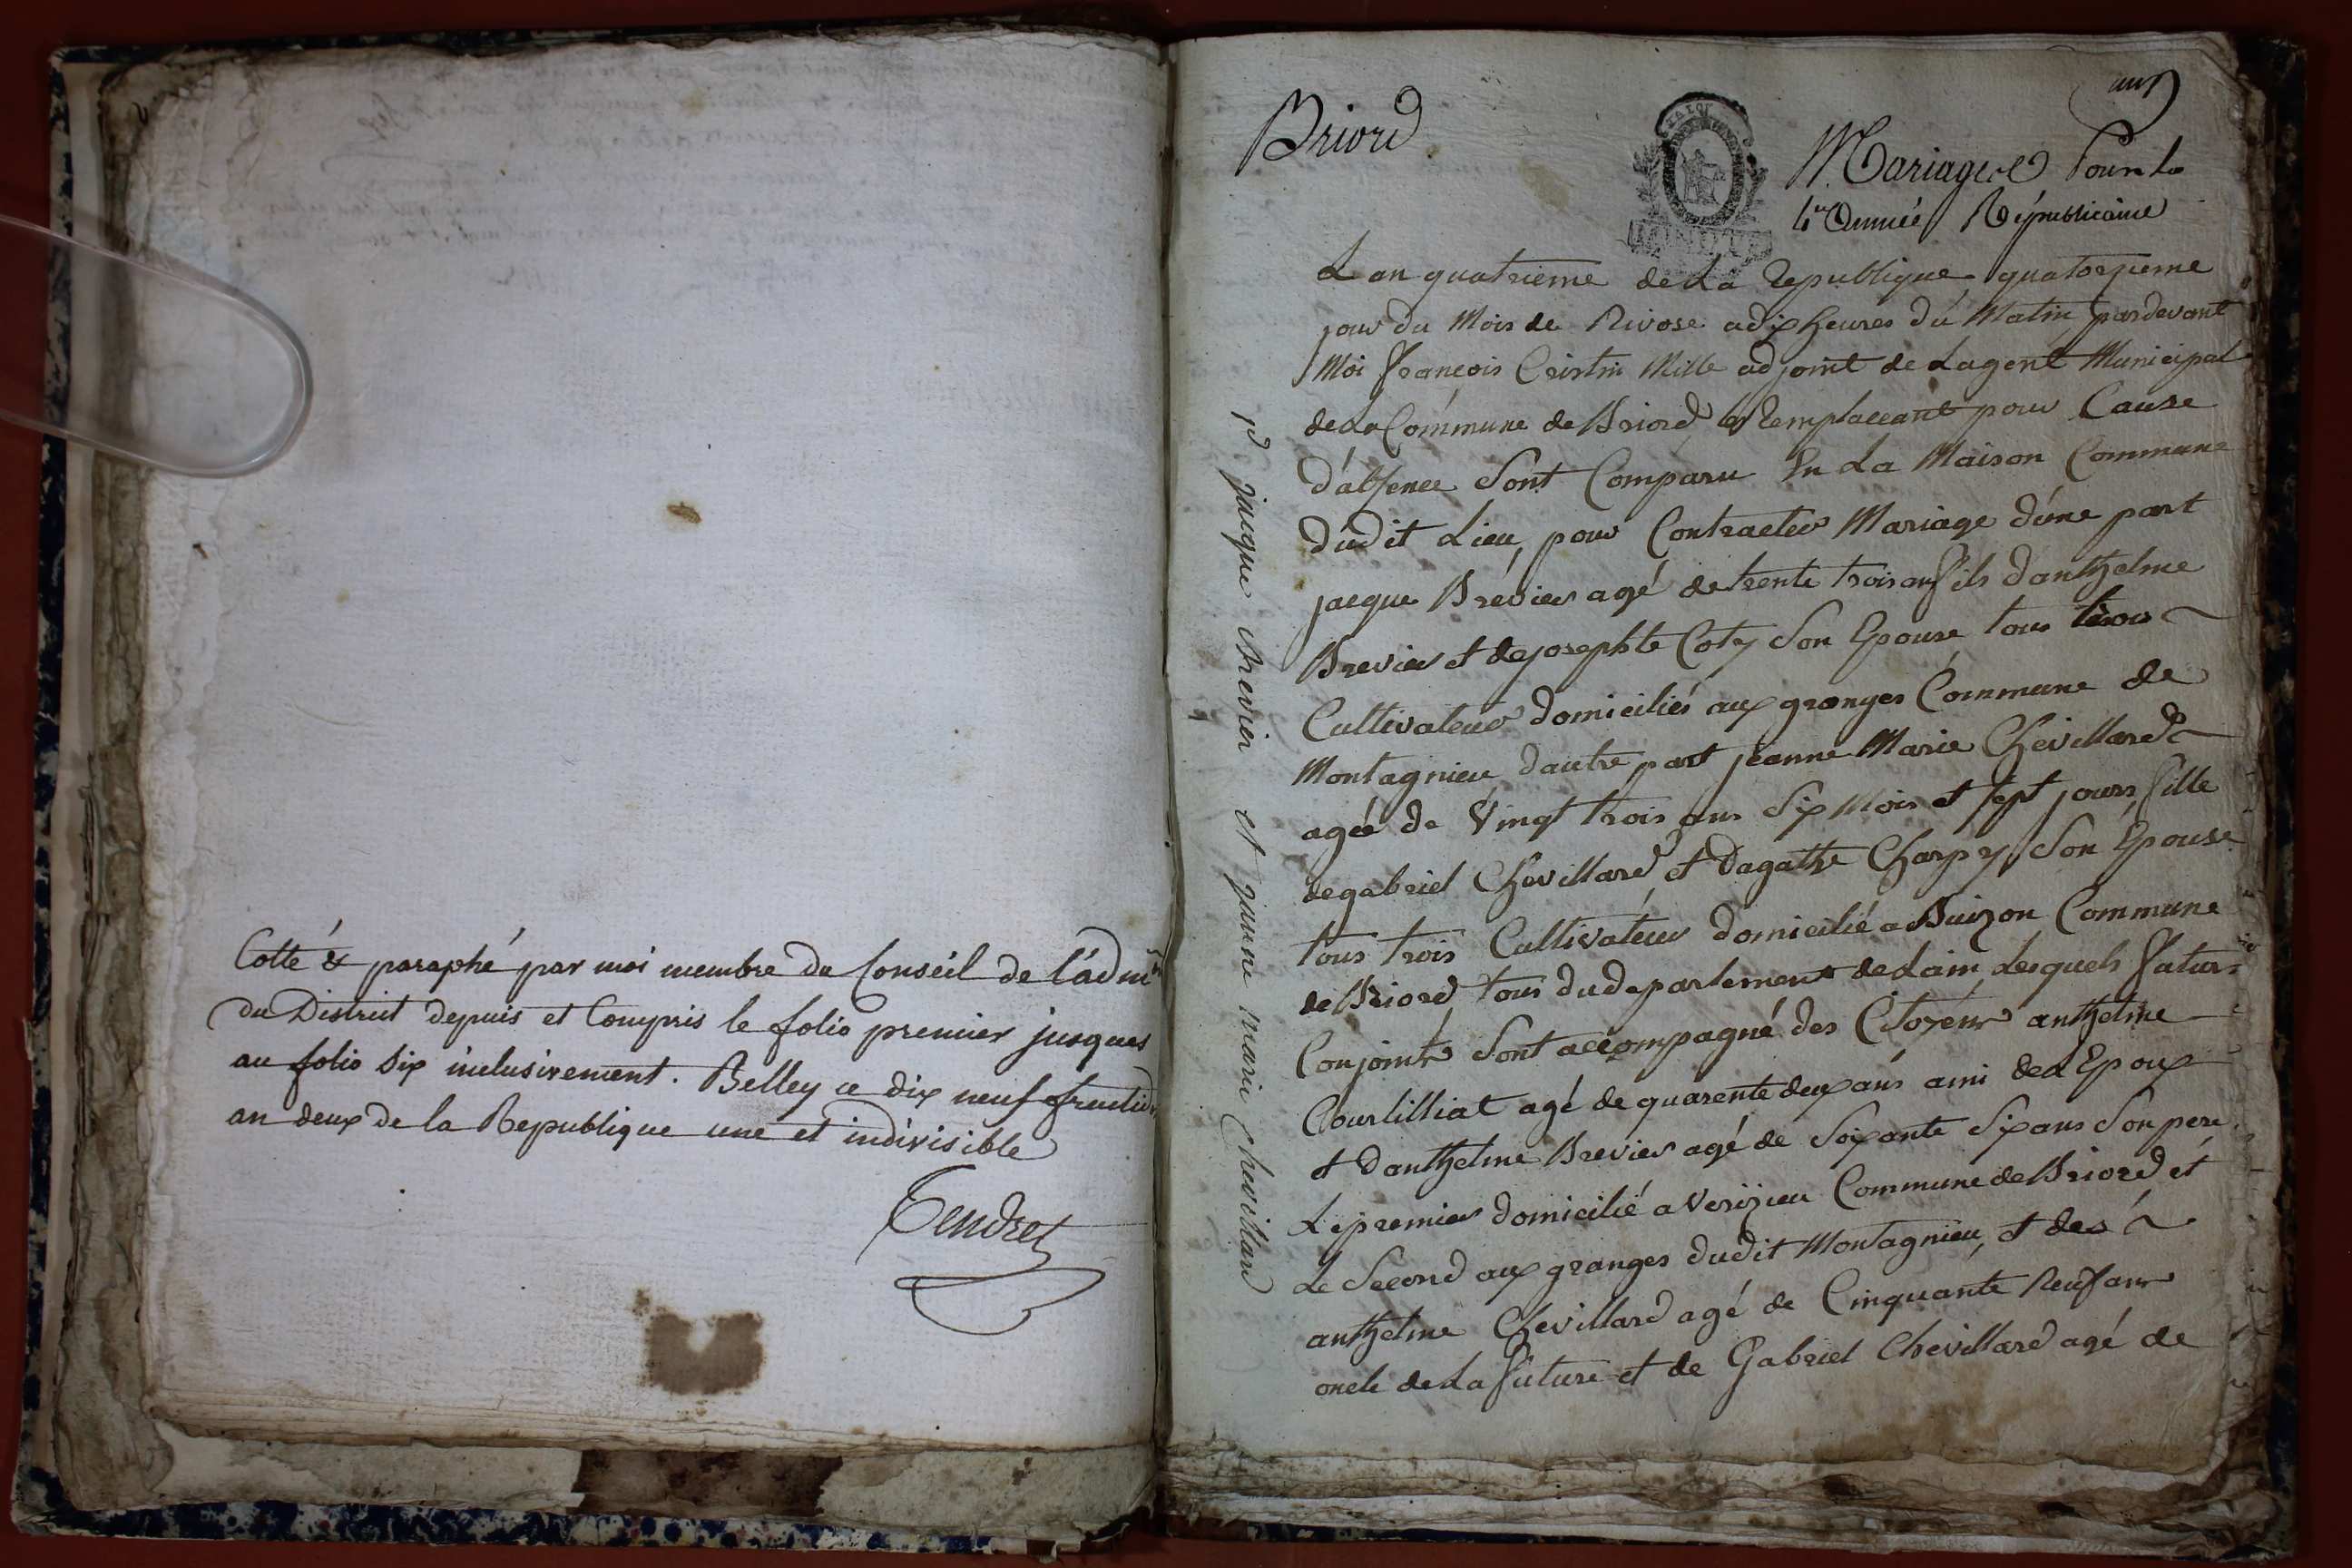 Cotté & paraphé par moi membre du Conseil de l'adm.on
du District depuis et Compris le folio premier jusques
au folio six inclusivement. Belley ce dix neuf
an deux de la Republique une et indivisible
Tendret
Briord
Mariages Pour la
4e Année Républicaine
L an quatrieme de La Republique quatorzieme
jour du Mois de Nivose a dix heures du Matin pardevant
Moi François Cristin Mille adjoint de Lagent Municipal
de La Commune de Briord Remplaceant pour Cause
d'absence Sont Comparu En La Maison Commune
dudit Lieu, pour Contracter Mariage d'une part
jacque Brévier agé de trente trois ans fils danthelme
Brevier et de josephte Coty Son Epouse tous trois
Cultivateur domiciliés aux granges Commune de
Montagnieu dautre part jeanne Marie Chevillard
agée de Vingt trois ans Six Mois et sept jours fille
de gabriel Chevillard et dagathe Charpy Son Epouse
tous trois Cultivateur domicilié a Buizon Commune
de Briord tous du departement de Lain, Lesquels futurs
Conjoints Sont accompagné des Citoyens anthelme
Courlilliat agé de quarente deux ans ami de L Epoux
et danthelme Brevier agé de Soixante Six ans Son pere
Le premier domicilié a Verizieu Commune de Briord et
Le Second aux granges dudit Montagnieu, et des
anthelme Chevillard agé de Cinquante Neuf ans
oncle de La future et de Gabriel Chevillard agé de
jacque Brevier et jeanne marie Chevillard